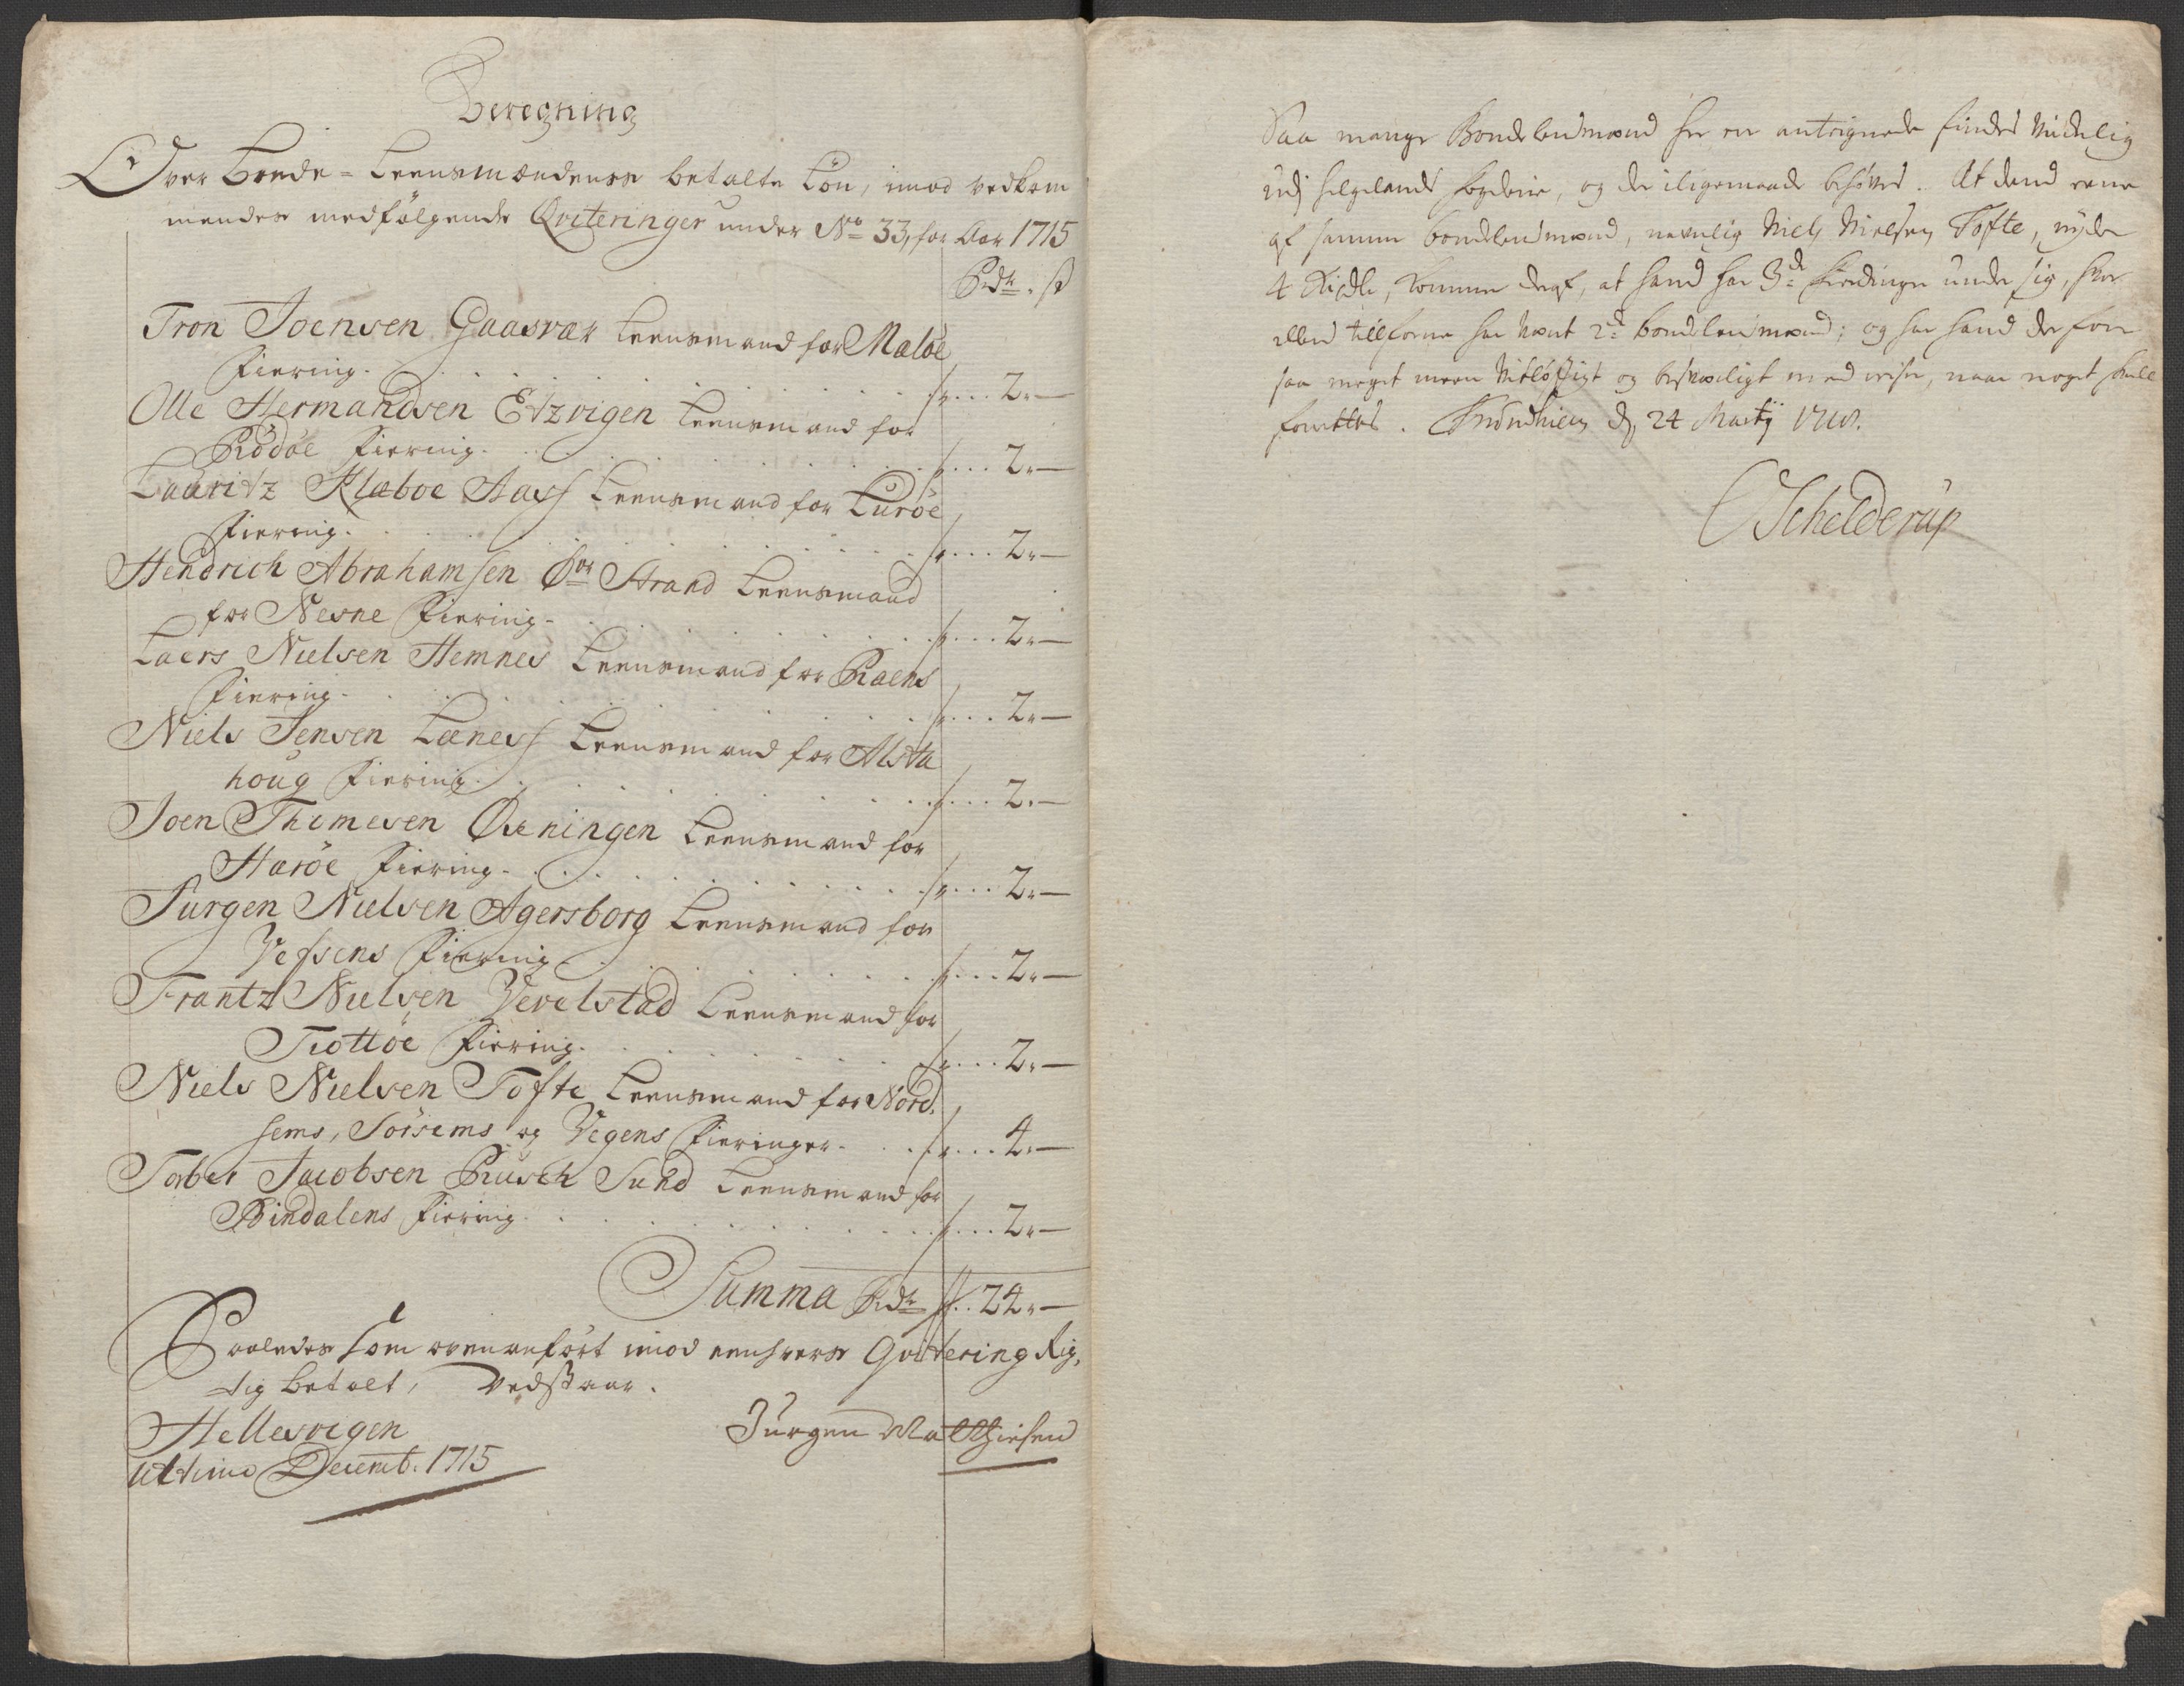 Beregning
Over Bonde-Leensmændenes betalte Lön, imod vedkom
mendes medfølgende Qviteringer under No 33, for Aar 1715
Rdr. s
Tron Joensen Gaasvær Leensmand for Meløe
Fiering. 2 –
Olle Hermandsen Etzvigen Leensmand for
Rødøe Fiering. 2 –
Lauritz Klæboe Aas Leensmand for Lurøe
Fiering. 2 –
Hendrich Abrahamsen Strand Leensmand
for Nesne Fiering. 2 –
Laers Nielsen Hemnes Leensmand for Raens
Fiering. 2 –
Niels Jensen Leensmand for Alsta
houg Fiering. 2 –
Joen Thomesen Leensmand for
Herøe Fiering. 2 –
Jurgen Nielsen Agersborg Leensmand for
Vefsens Fiering. 2 –
Frantz Nielsen Vevelstad Leensmand for
Tiøttøe Fiering. 2 –
Niels Nielsen Tofte Leensmand for Nord
sems, Sörsems og Vegens Fieringer. 4 –
Torber Jacobsen Rusch Sund Leensmand for
Bindalens Fiering. 2 –
Summa Rdr 24 –
Saaledes som ovenanfört imod eenhvers Qvitering Rig,
tig betalt, Vedstaar.
Hellesvigen
Ultimo Decemb. 1715
Jurgen Matthiesen
Saa mange Bondelendsmænd her er antegnede findes
udj Helgelands fogderie, og der iligemaade behøves. At dend eene
af samme bondelendsmænd, nemlig Niels Nielsen Tofte, nyder
4 Rixdlr, kommer deraf, at hand har 3de Fieringer under sig, hvor
ellers tilforne har været 2de bondelendsmænd; og har hand der for
saa meget meere vitløftigt og besværligt med reiser, naar noget skall
forrettes. Trundhiem d. 24 Martij
Schelderup